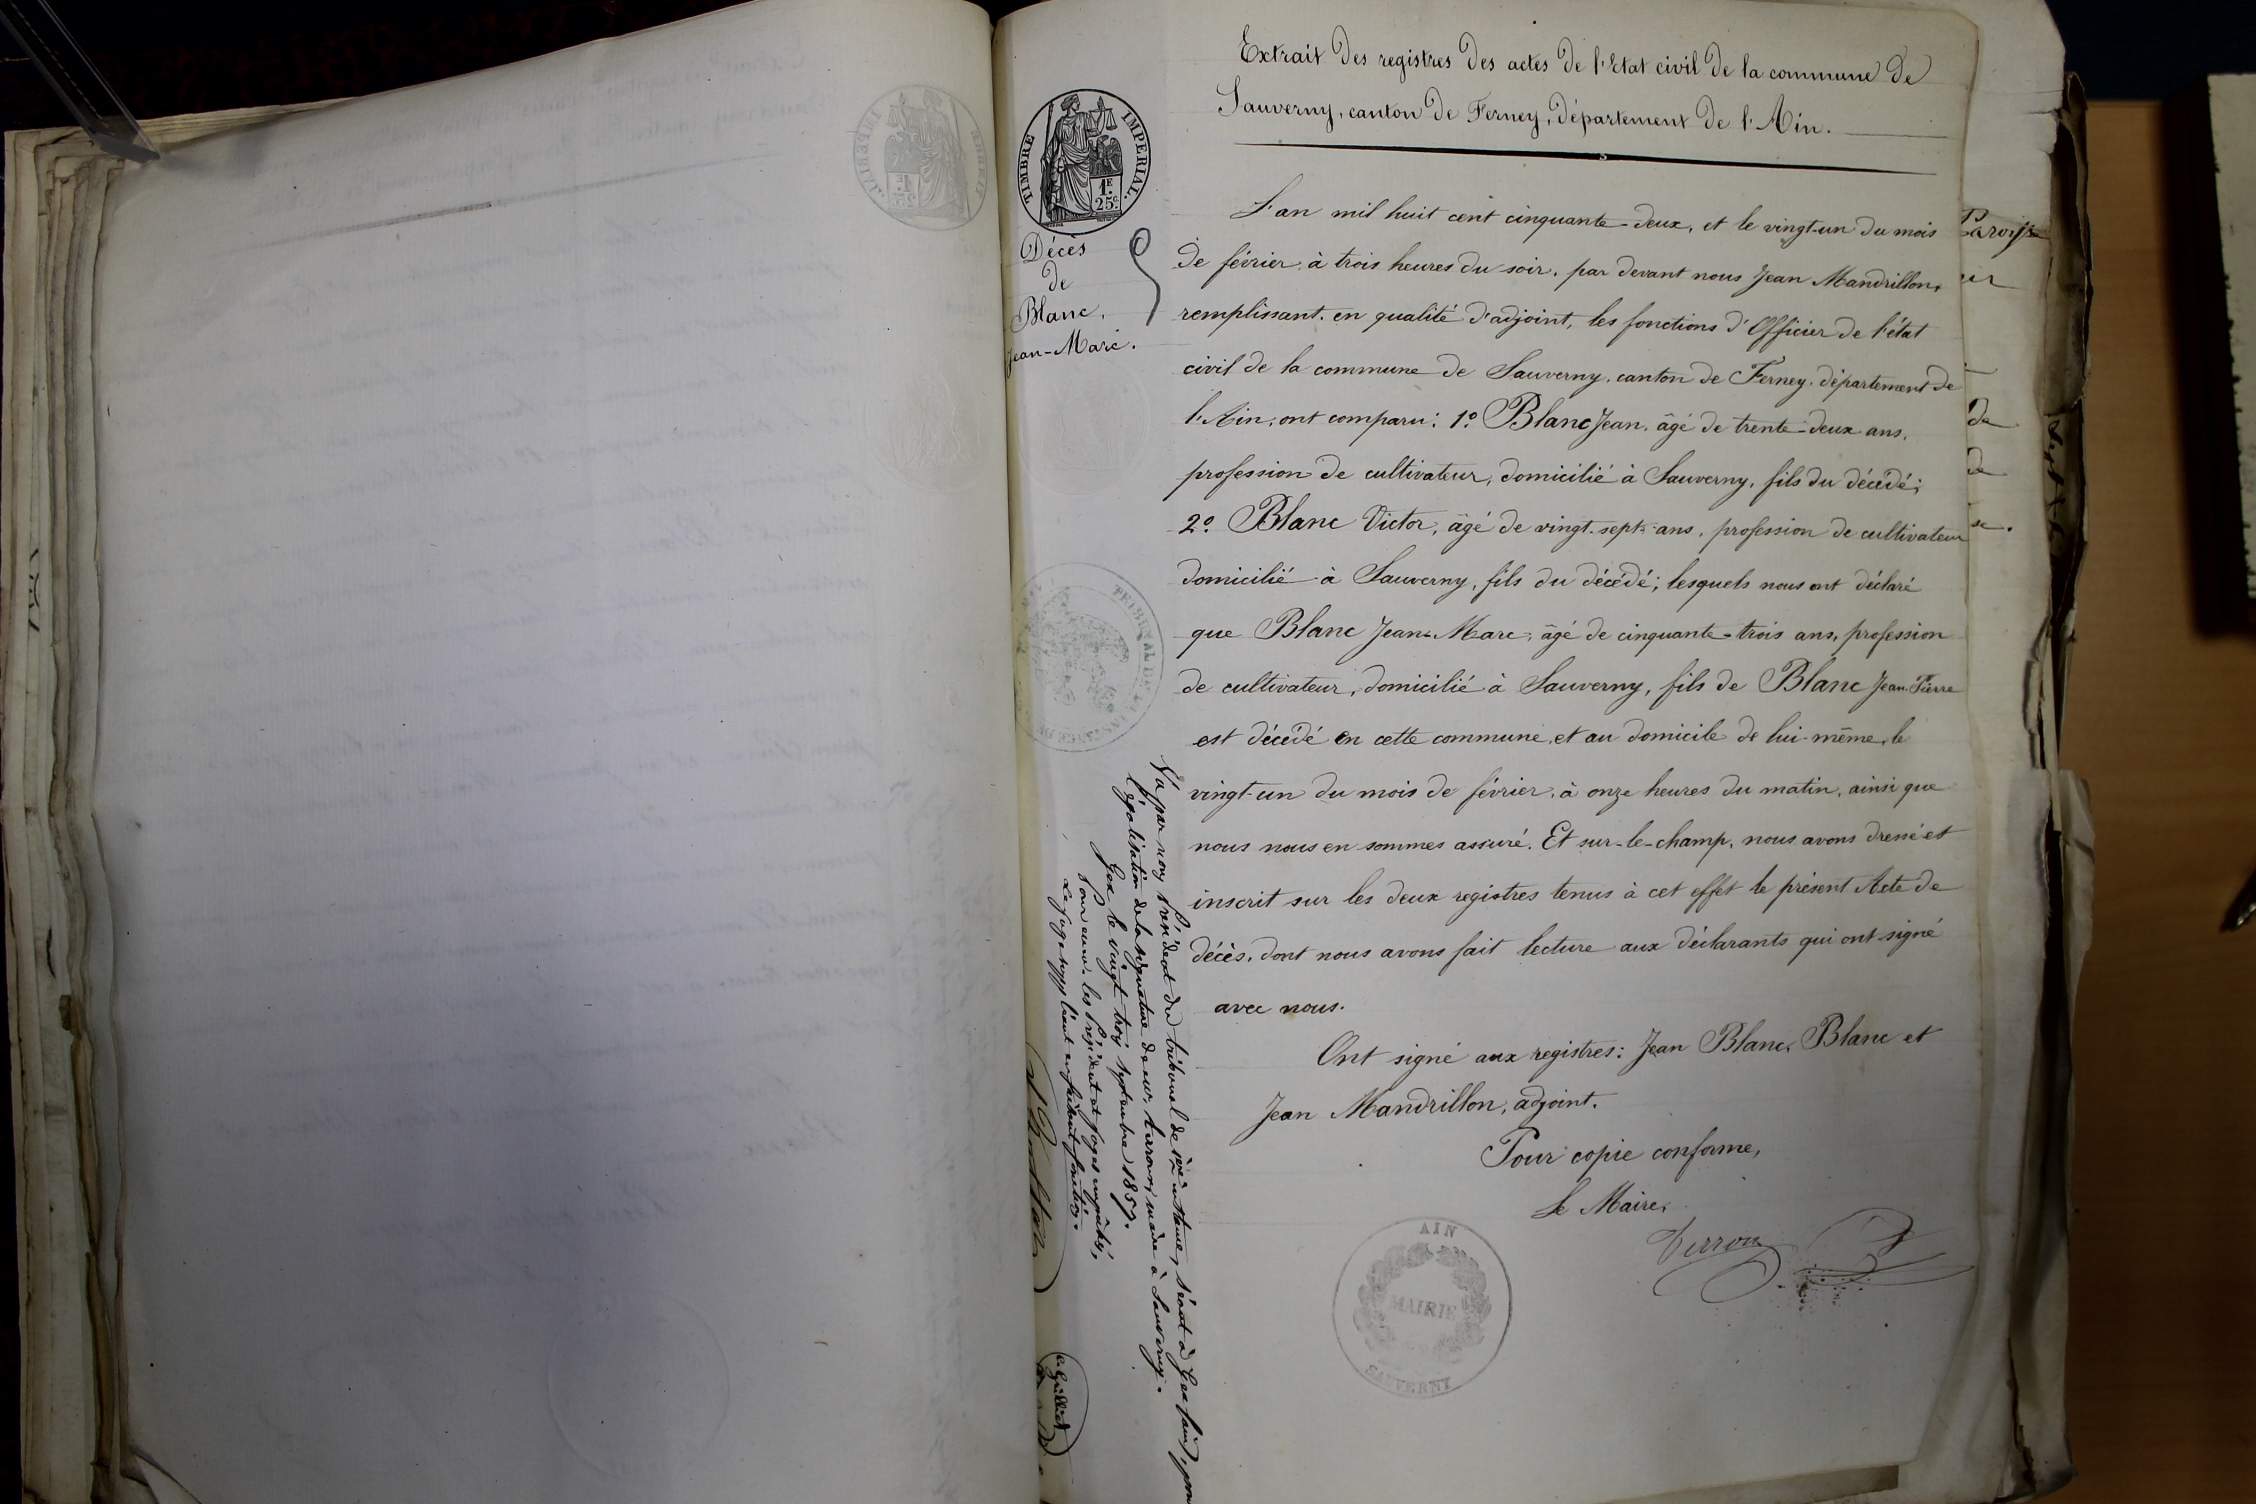 Extrait des registres des actes de l'Etat civil de la commune de
Sauverny, canton de Ferney, département de l'Ain.
TIMBRE IMPERIAL.
1F. 25c.
Décès
de
Blanc,
Jean-Marc.
L'an mil huit cent cinquante-deux, et le vingt-un du mois
de février, à trois heures du soir, par devant nous Jean Mandrillon,
remplissant, en qualité d'adjoint, les fonctions d'Officier de l'état
civil de la commune de Sauverny, canton de Ferney, département de
l'Ain, ont comparu: 1º. Blanc Jean, âgé de trente-deux ans,
profession de cultivateur, domicilié à Sauverny, fils du décédé;
2º. Blanc Victor, âgé de vingt-sept ans, profession de cultivateur
domicilié à Sauverny, fils du décédé; lesquels nous ont déclaré
que Blanc Jean-Marc, âgé de cinquante-trois ans, profession
de cultivateur, domicilié à Sauverny, fils de Blanc Jean-Pierre
est décédé en cette commune, et au domicile de lui-même, le
vingt-un du mois de février, à onze heures du matin, ainsi que
nous nous en sommes assuré. Et sur-le-champ, nous avons dressé et
inscrit sur les deux registres tenus à cet effet le présent Acte de
décès, dont nous avons fait lecture aux déclarants qui ont signé
avec nous.
Ont signé aux registres: Jean Blanc, Blanc et
Jean Mandrillon, adjoint.
Pour copie conforme,
Le Maire,
AIN
MAIRIE
SAUVERNY
Vu par nous Président du tribunal de 1ère instance, séant à Gex (ain), pour
légalisation de la signature de mr. maire à Sauverny.
Gex le vingt trois septembre 1857.
Pour mrs. les Président et Juges empêchés,
Le Juge suppléant en faisant fonction.